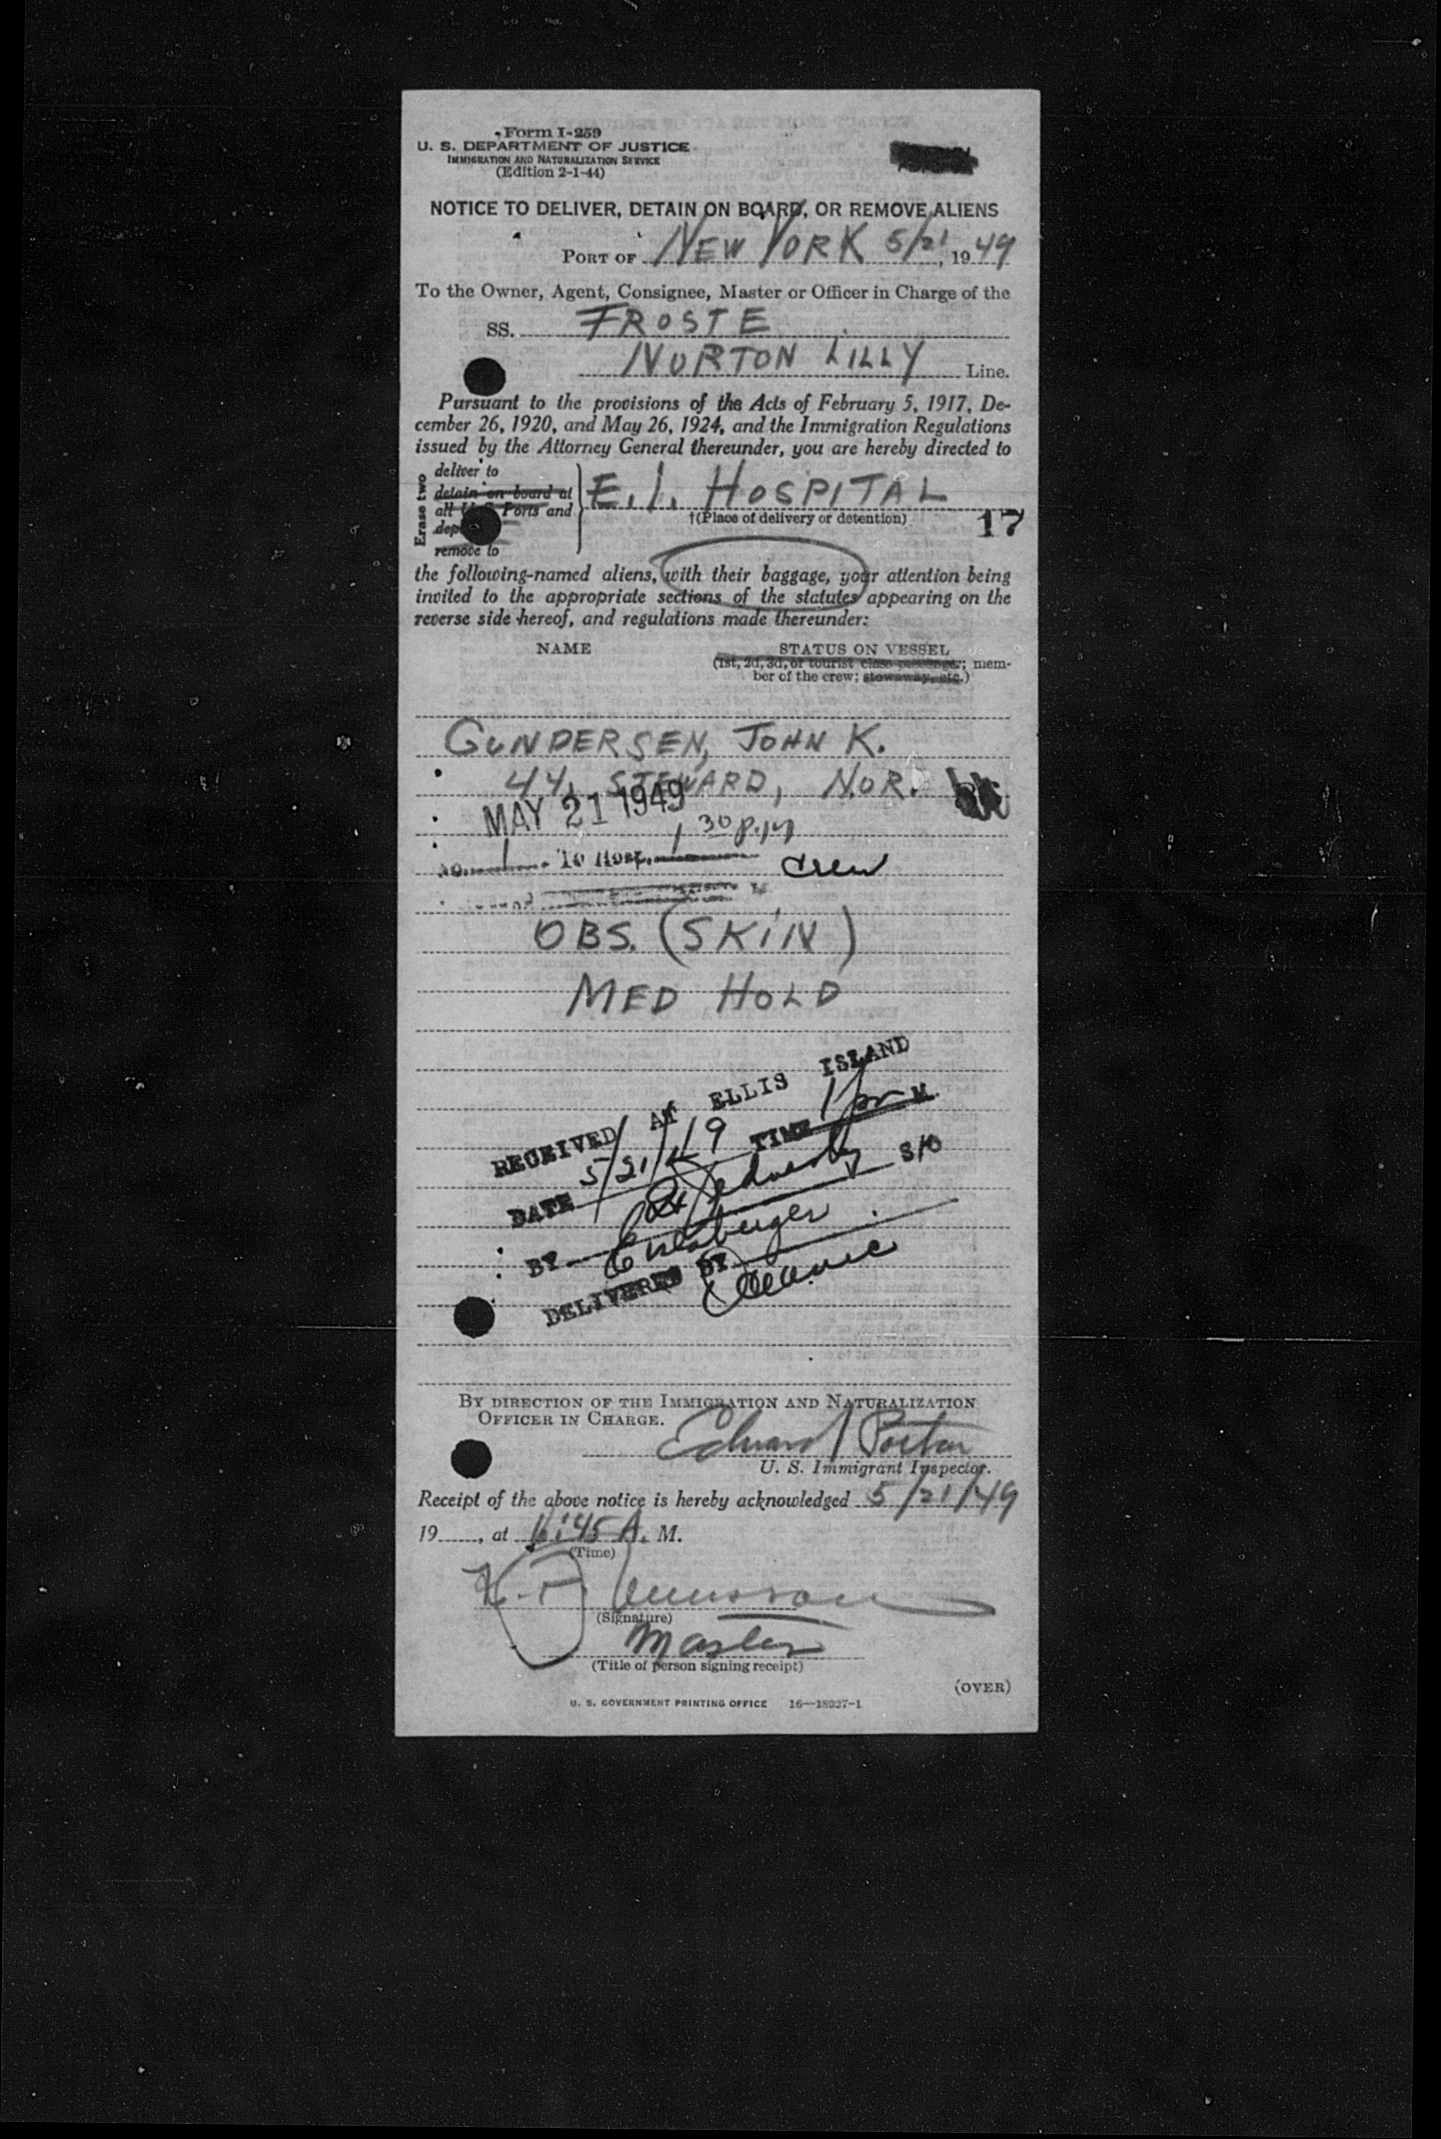 Form I-259
U. S. DEPARTMENT OF JUSTICE
IMMIGRATION AND NATURALIZATION SERVICE
(Edition 2-1-44)
NOTICE TO DELIVER, DETAIN ON BOARD, OR REMOVE ALIENS
PORT OF NEW YORK 5/21, 1949
To the Owner, Agent, Consignee, Master or Officer in Charge of the
SS. FROSTE
NORTON LILLY Line.
Pursuant to the provisions of the Acts of February 5, 1917, De-
cember 26, 1920, and May 26, 1924, and the Immigration Regulations
issued by the Attorney General thereunder, you are hereby directed to
Erase two
deliver to
detain on board at
all U S Ports and
remove to
E. I. HOSPITAL
†(Place of delivery or detention)
17
the following-named aliens, with their baggage, your attention being
invited to the appropriate sections of the statutes appearing on the
reverse side hereof, and regulations made thereunder:
NAME STATUS ON VESSEL
(1st, 2d, 3d, or tourist class passenger; mem-
ber of the crew; stowaway, etc.)
GUNDERSEN, JOHN K.
44, STEWARD, NOR.
MAY 21 1949
1 30 P.M
No. 1 To Hosp. 1 Crew
OBS. (SKIN)
MED HOLD
RECEIVED AT ELLIS ISLAND
DATE 5/21/49 TIME 1 M.
BY
DELIVERED BY
BY DIRECTION OF THE IMMIGRATION AND NATURALIZATION
OFFICER IN CHARGE.
Edward Porter
U. S. Immigrant Inspector.
Receipt of the above notice is hereby acknowledged 5/21/49
19 , at 11:45 A. M.
(Time)
(Signature)
Master
(Title of person signing receipt)
(OVER)
U. S. GOVERNMENT PRINTING OFFICE 16—18027-1